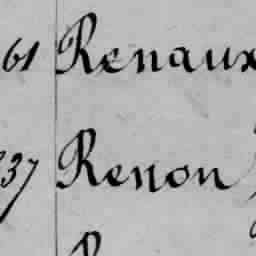 61 Renaux
37 Renon